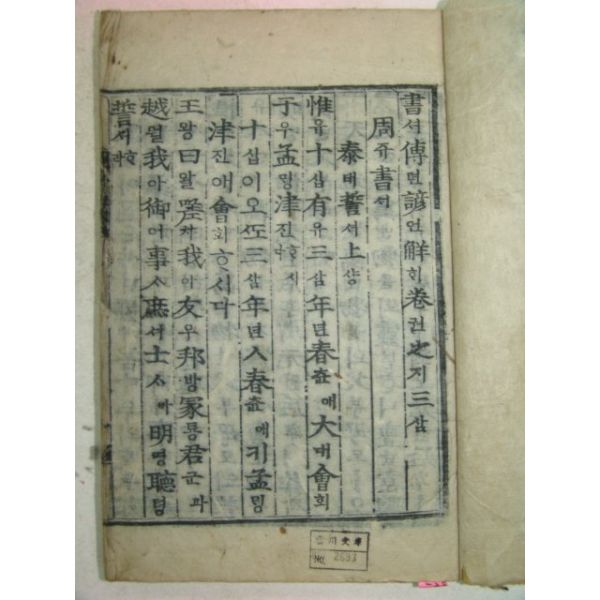 書셔傳뎐諺언解ᄒᆡ卷권之지三삼
周쥬書셔
泰태誓셔上샹
惟유十십有유三삼年년春츈애大대會회
于우孟ᄆᆡᆼ津진ᄒᆞ시다
十십이오ᄯᅩ三삼年년人春츈애키孟ᄆᆡᆼ
津진애會회ᄒᆞ시다
王왕曰왈嗟차我아友우邦방冢통君군과
越월我아御어事ᄉᆞ庶셔士ᄉᆞ아明명聽텽
誓셔ᄒᆞ라
2693